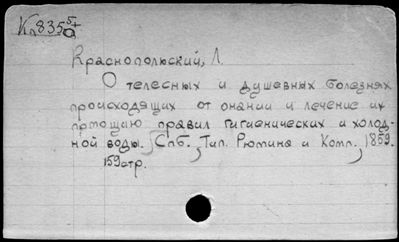 Кл 835 5+
а
Краснопольский, Л.
О телесных и душевных болезнях
происходящих от онании и лечение их
пpмощию правил гигиенических и холод-
ной воды. Спб. Тип. Рюмина и Комп., 1859.
159 стр.